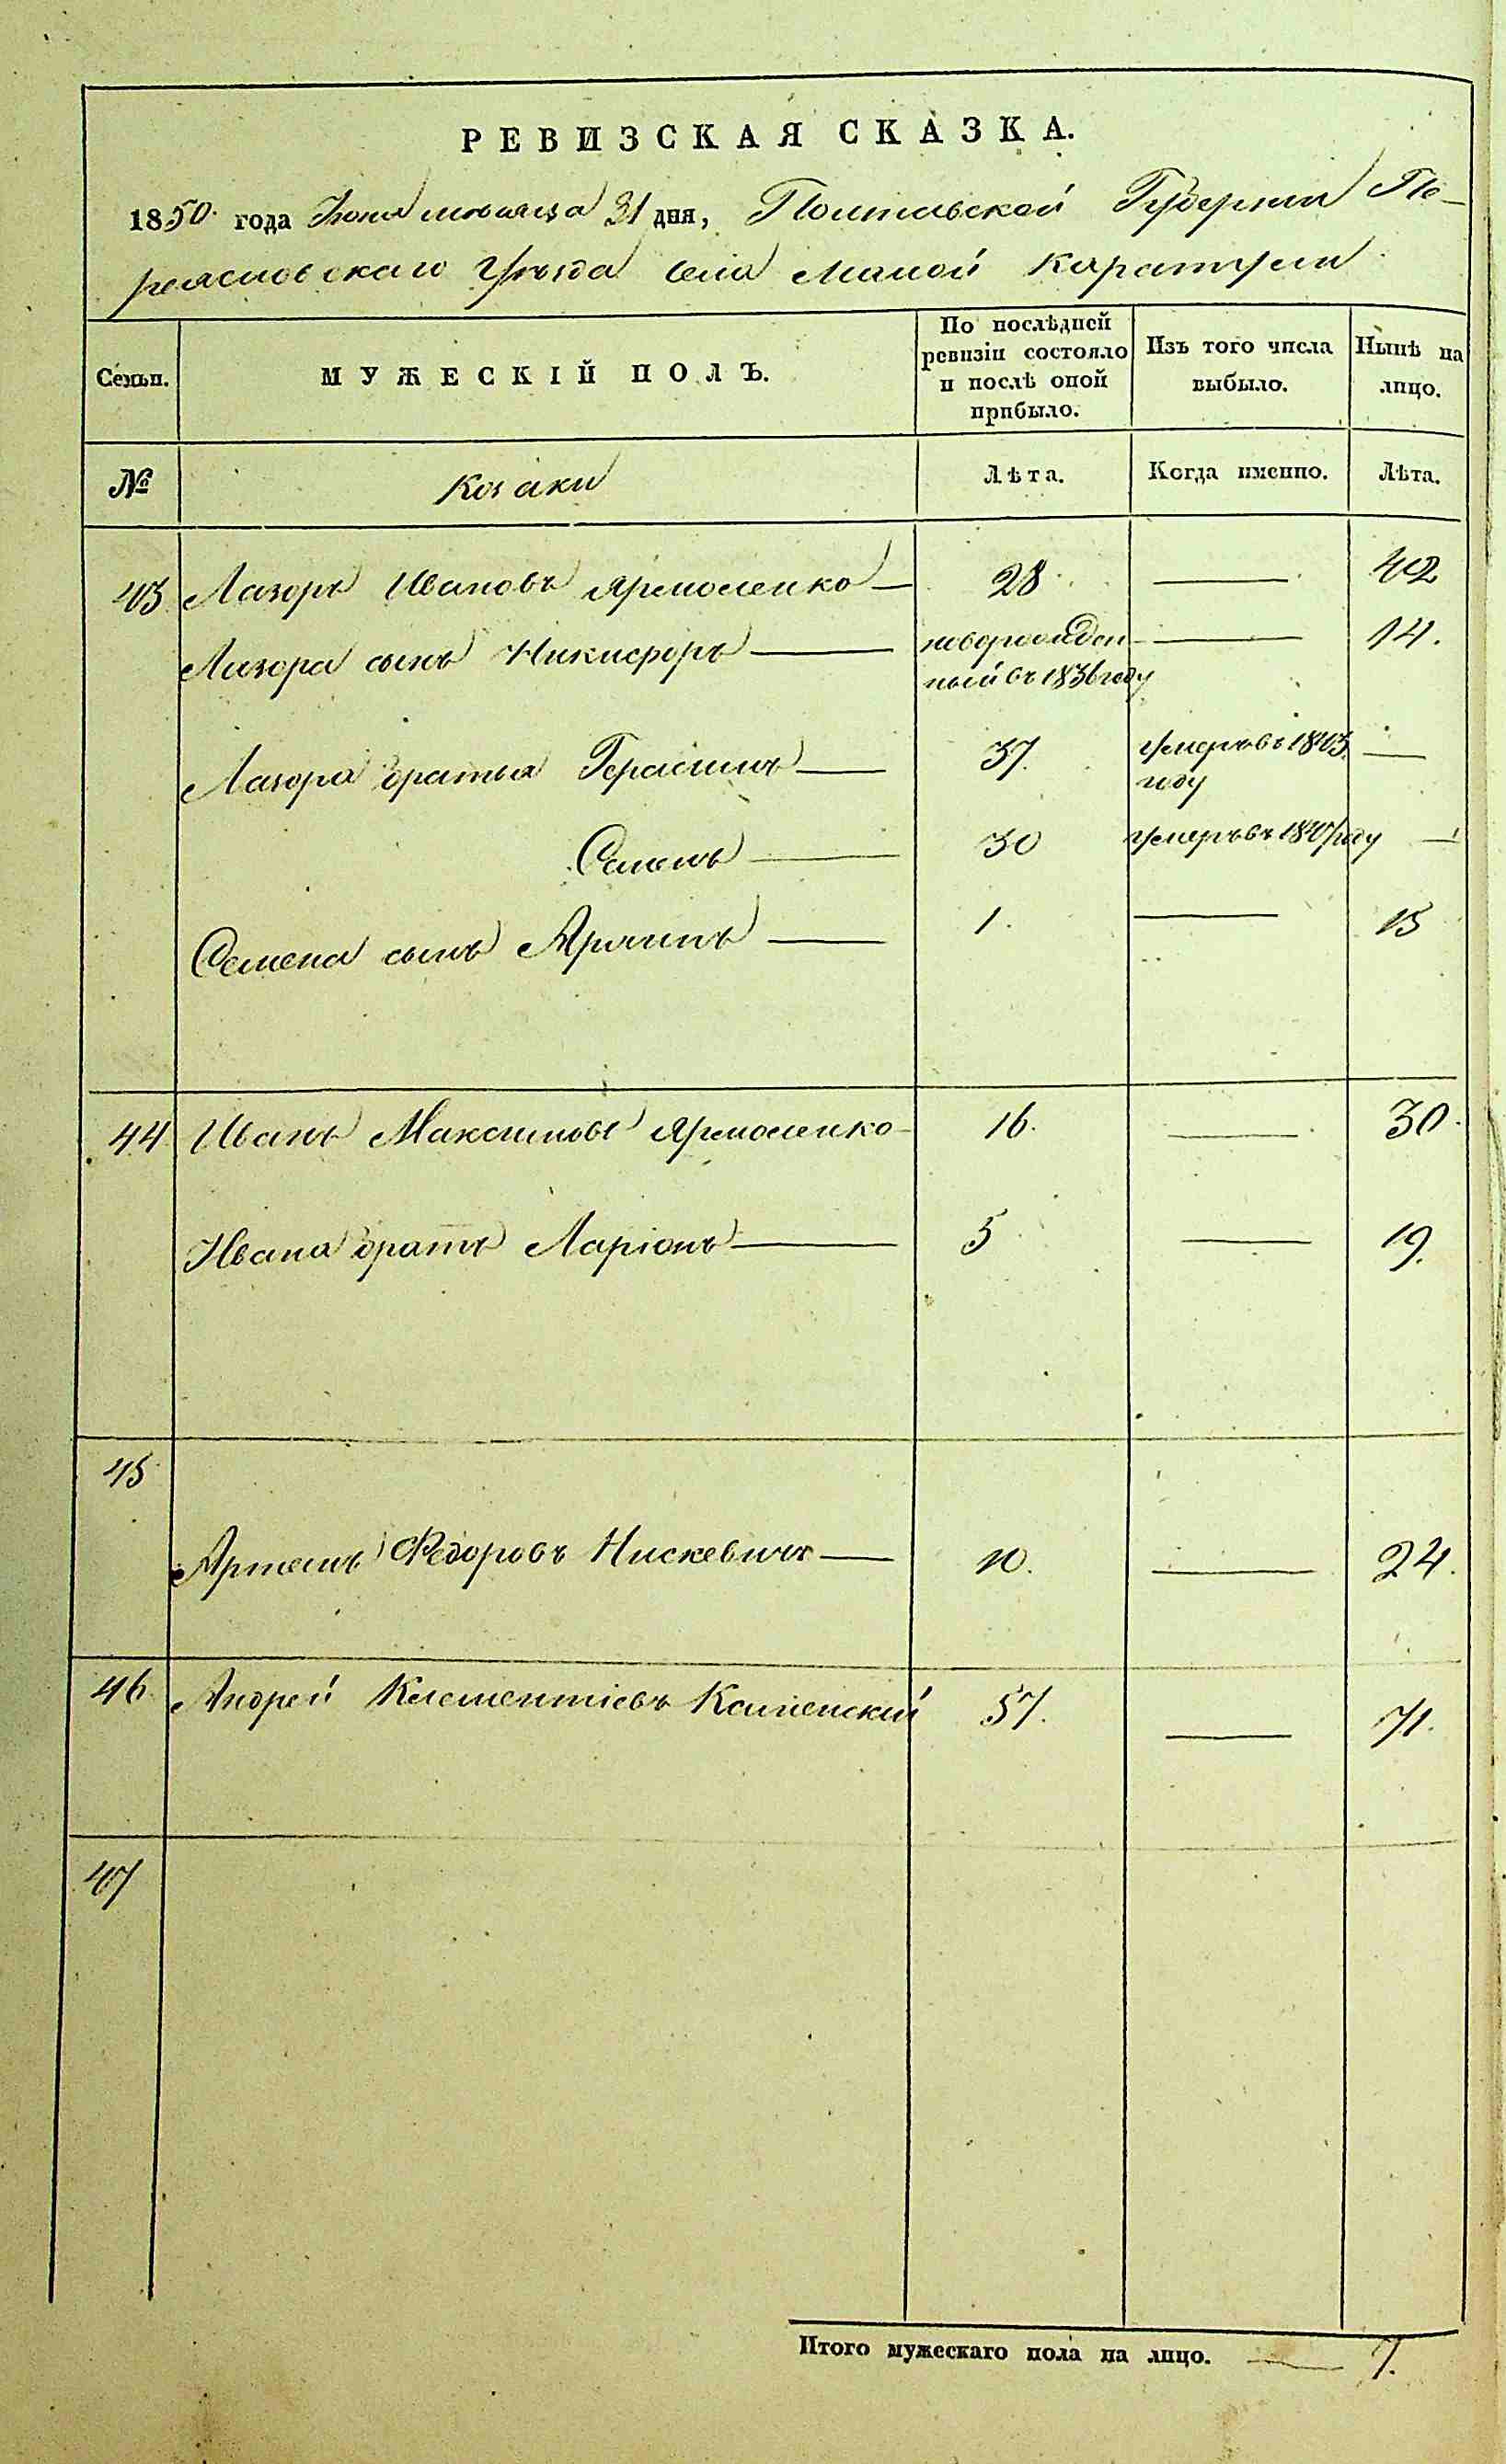 РЕВИЗСКАЯ СКАЗКА.
1850. года Июля мѣсяца 31 дня, Полтавской Губерніи Пе-
реясловскаго Уѣзда села Малой Каратули
Семьи.
МУЖЕСКІЙ ПОЛЪ.
По послѣдней ревизіи состояло и послѣ оной прибыло.
Изъ того числа выбыло.
Нынѣ на лицо.
№ Козаки Лѣта. Когда именно. Лѣта.
43 Лазорь Ивановъ Ярмоленко — 28 — 42
Лазора сынъ Никифоръ — новорожден- — 14.
ный въ 1836 году
Лазора братья Герасимъ — 37. умеръ въ 1843. —
году
Семенъ — 30 умеръ въ 1840 году —
Семена сынъ — 1. — 15
44 Иванъ Максимовъ Ярмоленко 16. — 30.
Ивана братъ Ларіонъ — 5 — 19.
45
Артемъ Федоровъ Нискевичъ — 10. — 24.
46. Андрей Клементіевъ 57. — 71.
47
Итого мужескаго пола на лицо. — 7.